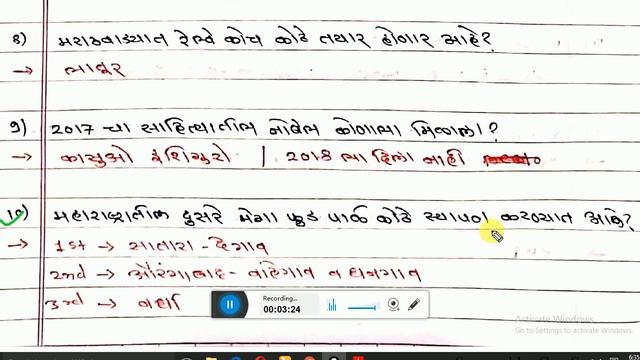 8) मराठवाड्यात रेल्वे कोच कोठे तयार होणार आहे?
→ लातूर
9) 2017 चा साहित्यातील नोबेल कोणाला मिळाला?
→ काझुओ इशिगुरो / 2018 ला दिला नाही
10) महाराष्ट्रातील दुसरे मेगा फुड पार्क कोठे स्थापना करण्यात आले?
→ 1st → सातारा - देगाव
2nd → औरंगाबाद - वाहेगाव व धनगाव
3rd → वर्धा
Recording...
00:03:24
Activate Windows
Go to Settings to activate Windows.